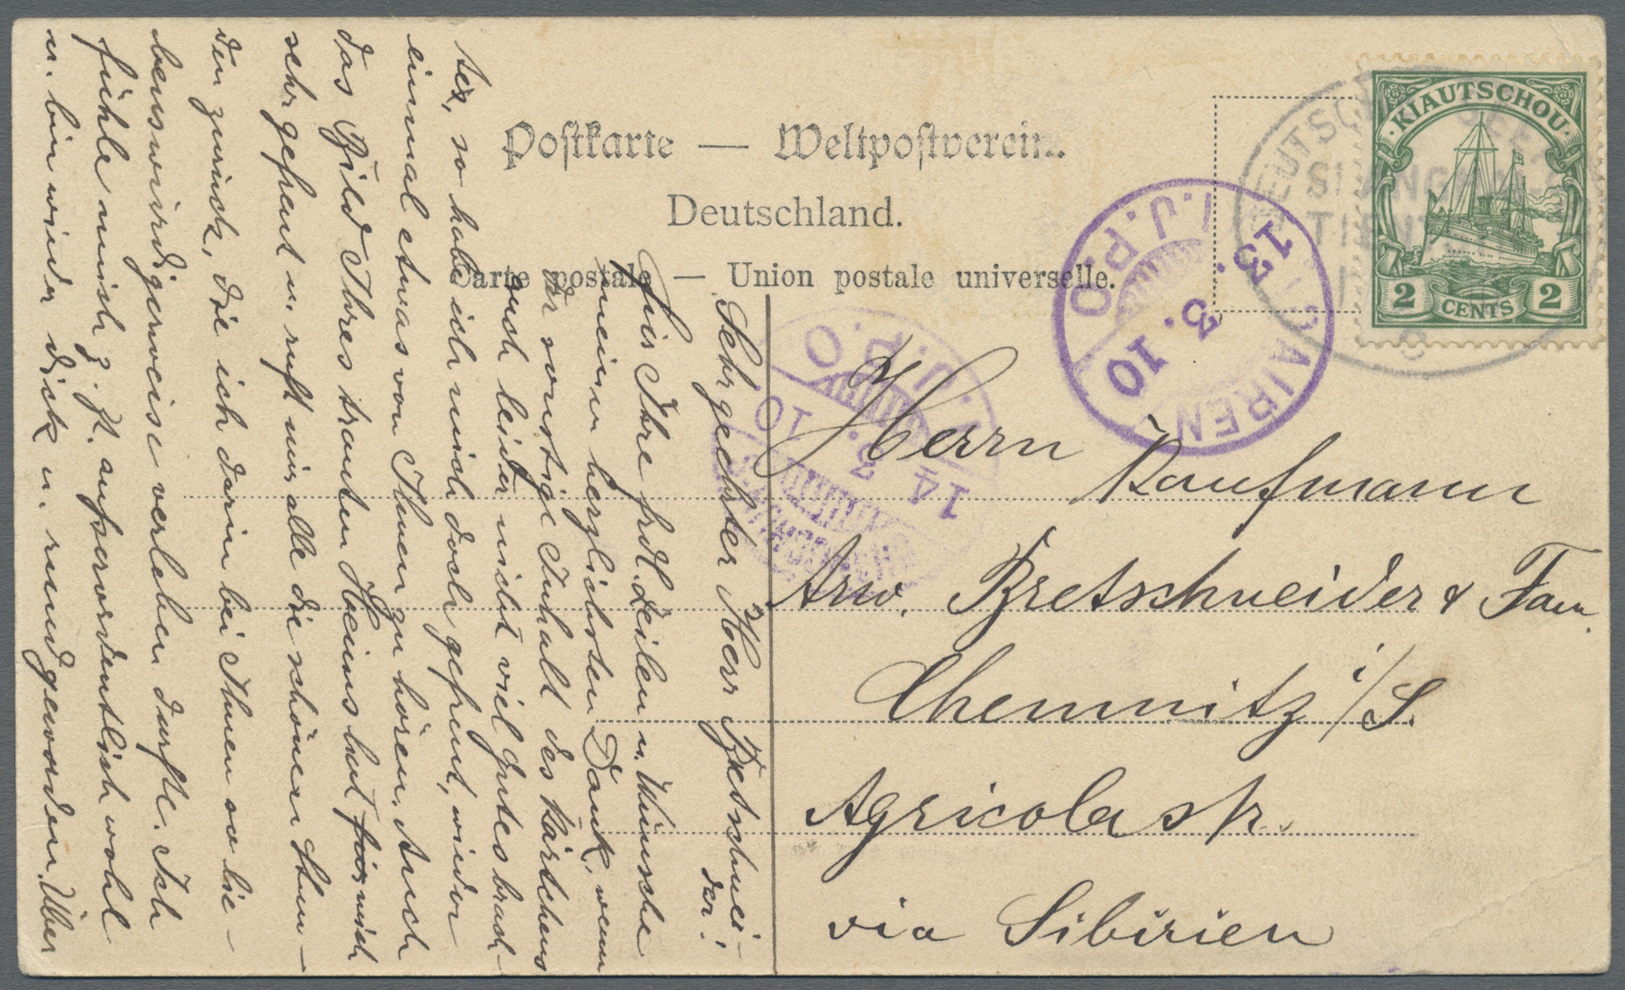 Postkarte — Weltpostverein.
Deutschland.
Carte postale — Union postale universelle.
KIAUTSCHOU
2 CENTS 2
DEUTSCHE SEEPOST
SHANGHAI
TIENTSIN
I.J.P.O.
13. 3. 10
DAIREN
I.J.P.O.
14 3. 10
Herrn
Kaufmann
Arw. Bretschneider & Fam.
Chemnitz i/S.
Agricolastr.
via Sibirien
Sehr geehrter Herr Bretschnei-
der!
Für Ihre frdl. Zeilen u. Wünsche
meinen herzlichsten Dank, wenn
der sonstige Inhalt des Kärtchens
auch leider nicht viel Gutes brach-
te, so habe ich mich doch gefreut, wieder
einmal etwas von Ihnen zu hören. Auch
das Bild Ihres trauten Heims hat mich
sehr gefreut u. ruft mir alle die schönen Stun-
den zurück, die ich darin bei Ihnen so lie-
benswürdigerweise verleben durfte. Ich
fühle mich z. Zt. außerordentlich wohl
u. bin wieder dick u. rund geworden. Über